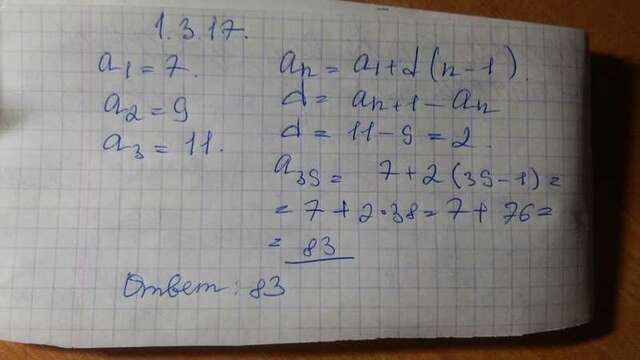 1.3.17.
a1 = 7.
a2 = 9
a3 = 11.
an = a1 + d(n-1).
d = an+1 - an
d = 11 - 9 = 2.
a39 = 7 + 2(39-1) =
= 7 + 2·38 = 7 + 76 =
= 83
Ответ: 83